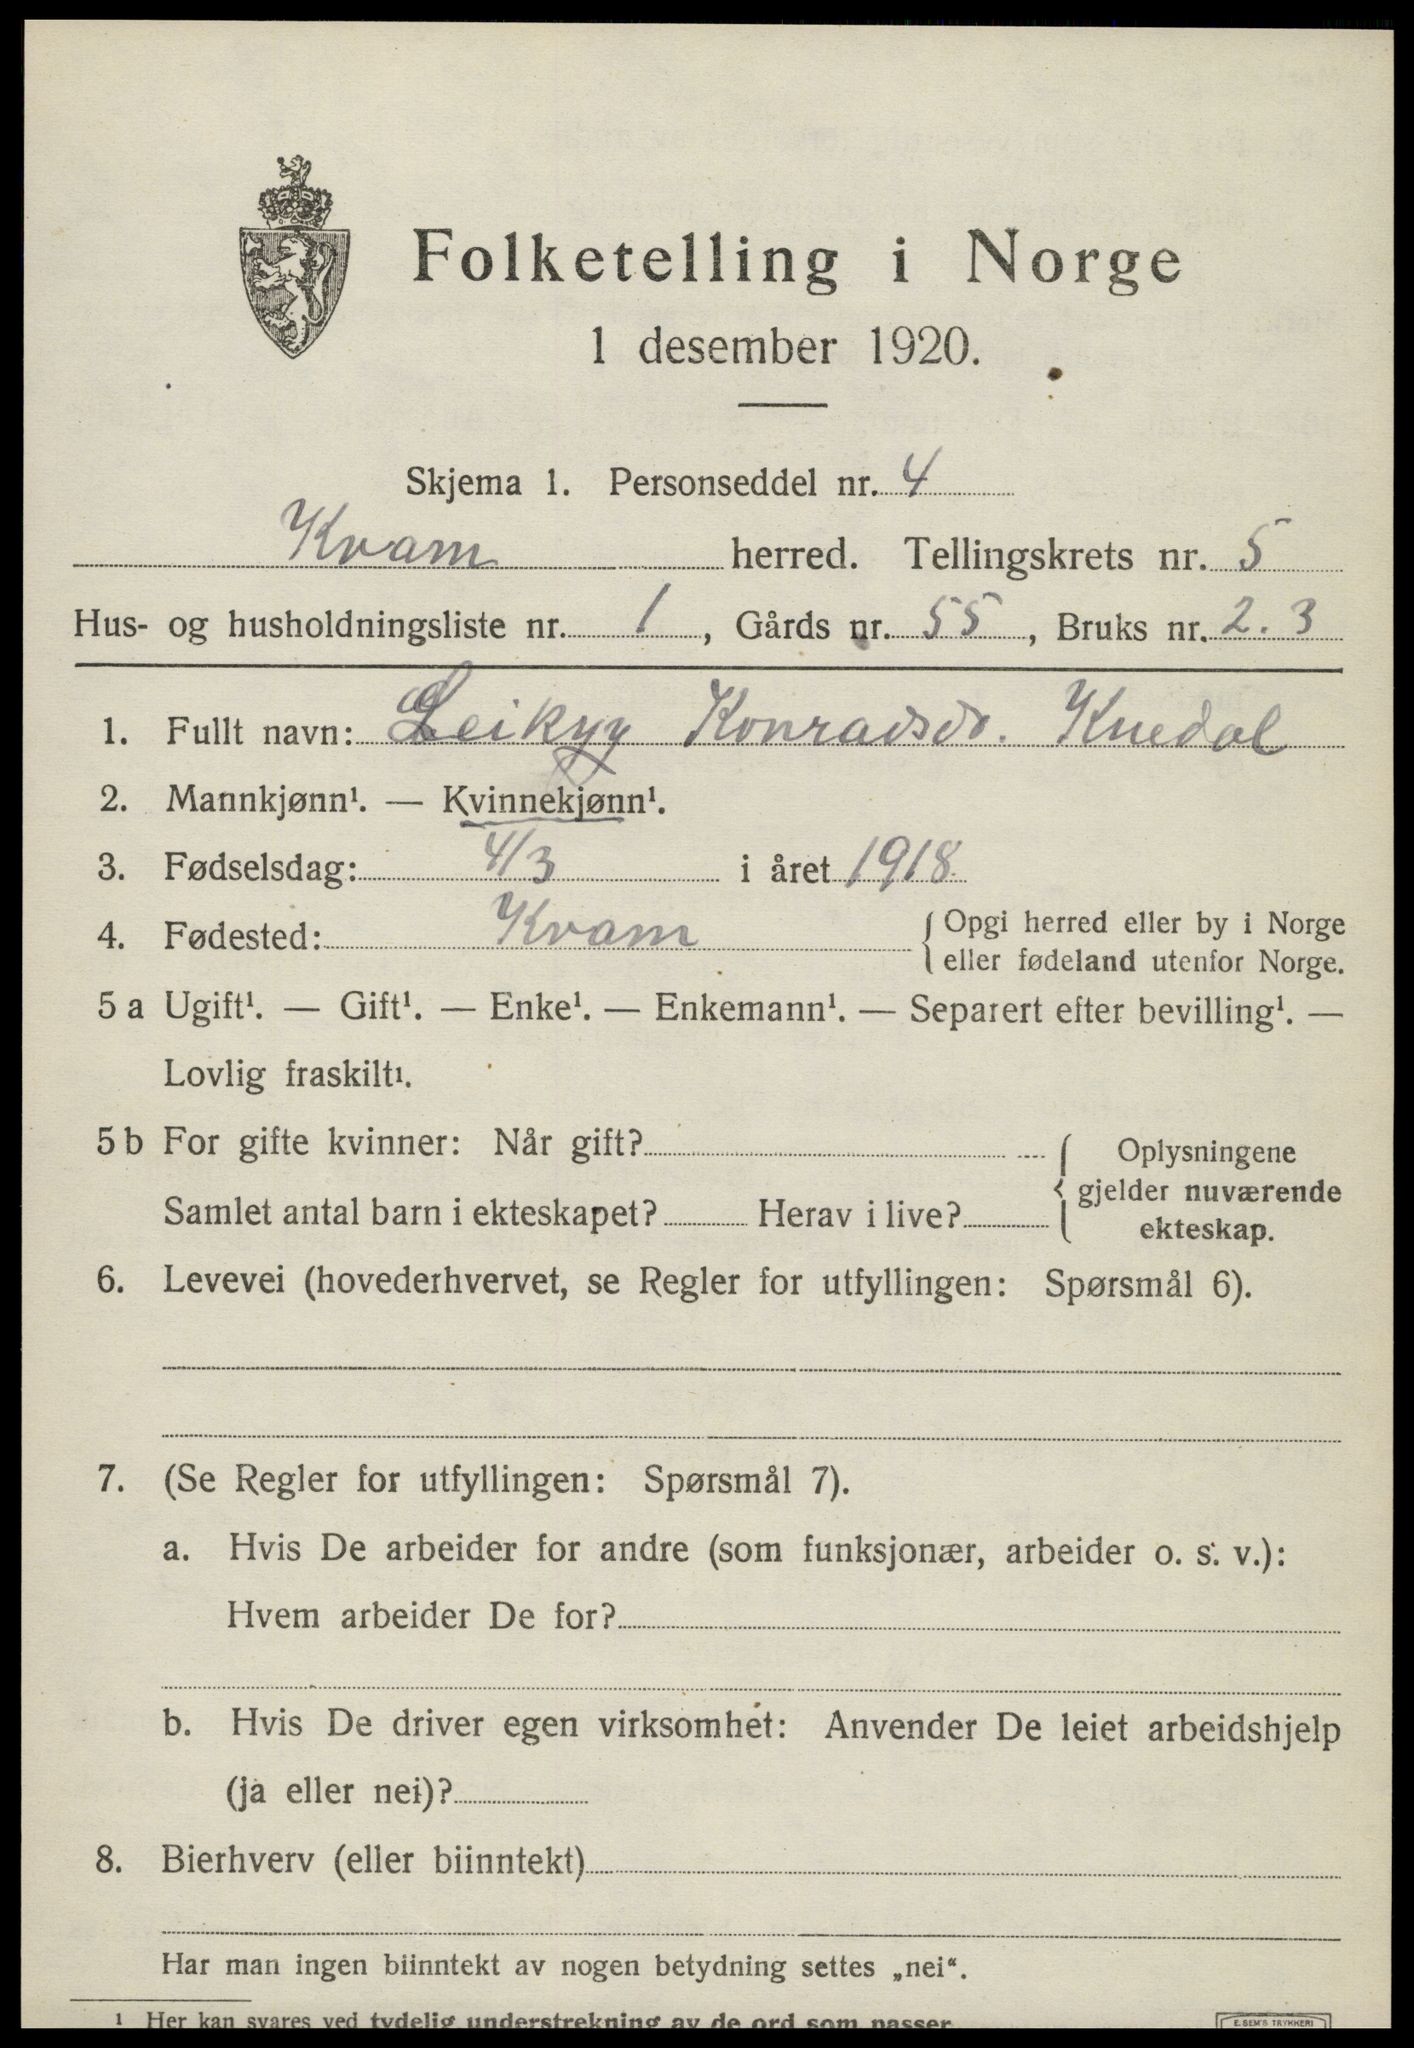 Folketelling i Norge
1 desember 1920.
Skjema 1. Personseddel nr. 4
Kvam herred. Tellingskrets nr. 5
Hus- og husholdningsliste nr. 1, Gårds nr. 55, Bruks nr. 2.3
1. Fullt navn: Konradsd. Knedal
2. Mannkjønn¹. — Kvinnekjønn¹.
3. Fødselsdag: 4/3 i året 1918
4. Fødested: Kvam { Opgi herred eller by i Norge
eller fødeland utenfor Norge.
5 a Ugift¹. — Gift¹. — Enke¹. — Enkemann¹. — Separert efter bevilling¹. —
Lovlig fraskilt¹.
5 b For gifte kvinner: Når gift?
Samlet antal barn i ekteskapet? Herav i live?
{ Oplysningene
gjelder nuværende
ekteskap.
6. Levevei (hovederhvervet, se Regler for utfyllingen: Spørsmål 6).
7. (Se Regler for utfyllingen: Spørsmål 7).
a. Hvis De arbeider for andre (som funksjonær, arbeider o. s. v.):
Hvem arbeider De for?
b. Hvis De driver egen virksomhet: Anvender De leiet arbeidshjelp
(ja eller nei)?
8. Bierhverv (eller biinntekt)
Har man ingen biinntekt av nogen betydning settes „nei“.
¹ Her kan svares ved tydelig understrekning av de ord som passer
E. SEM'S TRYKKERI